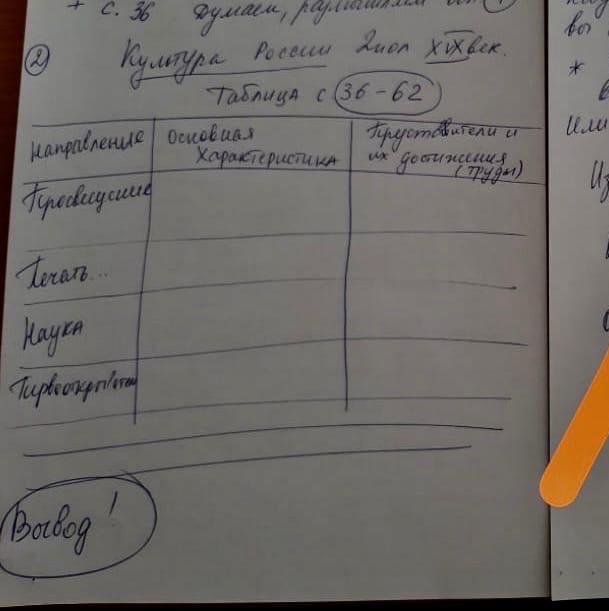 + с. 36 Думаем, размышляем
2 Культура России 2 пол XIX век.
Таблица с 36-62
Направление
Основная
характеристика
Представители и
их достижения
(труды)
Просвещение
Печать...
Наука
Первооткрыватели
Вывод!
вы
*
в
Или
Из